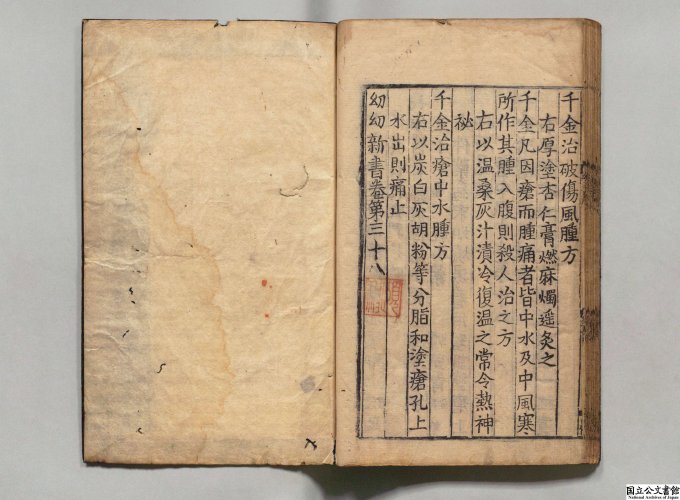 千金治破傷風腫方
右厚塗杏仁膏燃麻燭遥灸之
千金凡因瘡而腫痛者皆中水及中風寒
所作其腫入腹則殺人治之方
右以温桑灰汁漬冷復温之常令熱神
祕
千金治瘡中水腫方
右以炭白灰胡粉等分脂和塗瘡孔上
水出則痛止
幼幼新書卷第三十八
国立公文書館
National Archives of Japan